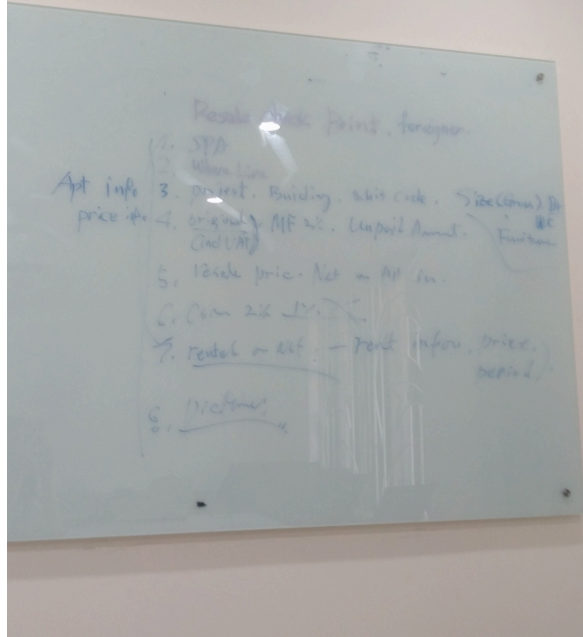 Resale Check Point, foreigner.
1. SPA
2.
Apt info 3. Building. Unit code.
price info 4. original MF 2%. Unpaid Amount. Furniture
(incl VAT)
5. Resale price - Net or All in.
6. Com 2% 1%.
7. rented or Not. - rent infor, price,
period.
8. Pictures.